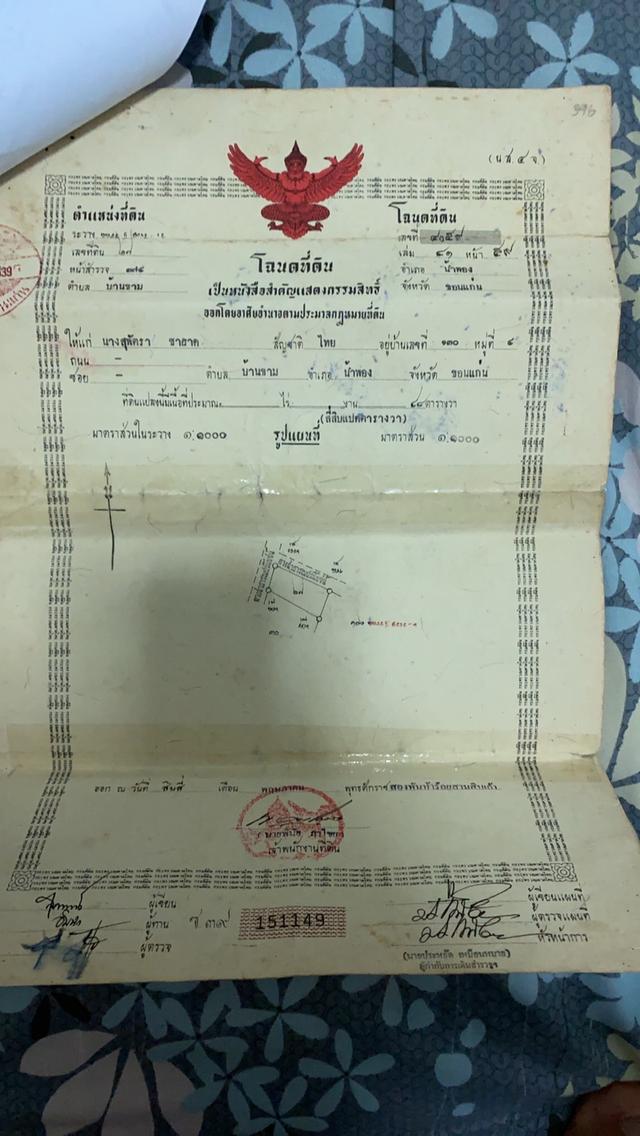 396
(น.ส.๔ จ)
ตำแหน่งที่ดิน
ระวาง
เลขที่ดิน ๒๗
หน้าสำรวจ ๓๗๘
ตำบล บ้านขาม
โฉนดที่ดิน
เลขที่ ๔๑๕๙
เล่ม ๔๑ หน้า ๕๙
อำเภอ น้ำพอง
จังหวัด ขอนแก่น
โฉนดที่ดิน
เป็นหนังสือสำคัญแสดงกรรมสิทธิ์
ออกโดยอาศัยอำนาจตามประมวลกฎหมายที่ดิน
ให้แก่ นางสุพัตรา ชายาด สัญชาติ ไทย อยู่บ้านเลขที่ ๑๓๐ หมู่ที่ ๙
ถนน –
ซอย – ตำบล บ้านขาม อำเภอ น้ำพอง จังหวัด ขอนแก่น
ที่ดินแปลงนี้มีเนื้อที่ประมาณ ไร่ งาน ๔๘ ตารางวา
(สี่สิบแปดตารางวา)
มาตราส่วนในระวาง ๑:๑๐๐๐ รูปแผนที่ มาตราส่วน ๑:๑๐๐๐
๒๗
ออก ณ วันที่ สิบสี่ เดือน พฤษภาคม พุทธศักราช สองพันห้าร้อยสามสิบเก้า
เจ้าพนักงานที่ดิน
ผู้เขียน
ผู้ทาน
ผู้ตรวจ
151149
ผู้เขียนแผนที่
ผู้ตรวจแผนที่
หัวหน้าการ
ผู้กำกับการเดินสำรวจฯ